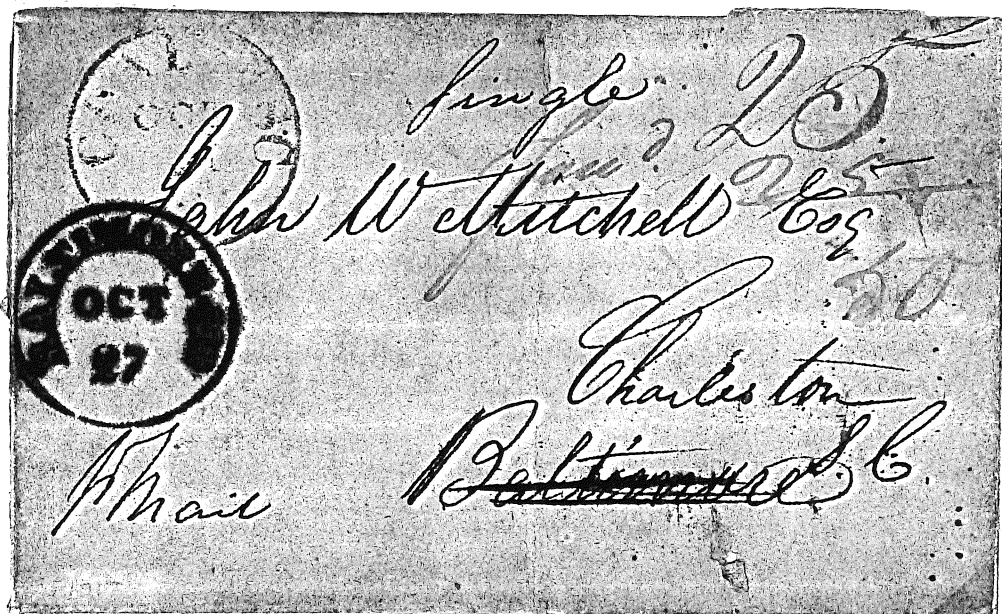 Single 25
25
John W Mitchell Esq
50
BALTIMORE
OCT
27
Charleston
Baltimore S. C.
Mail